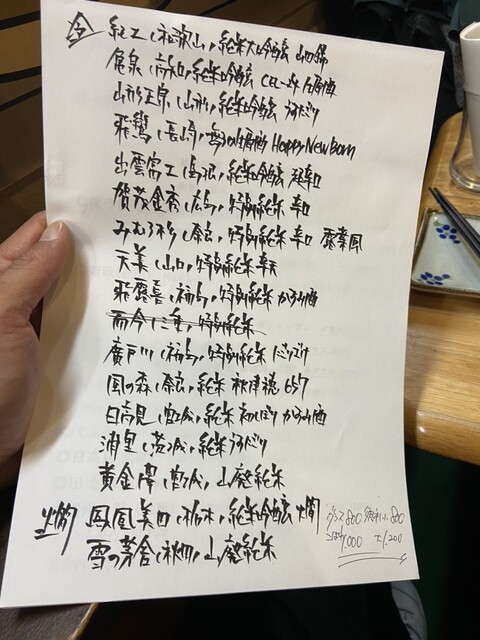 冷 紀土(和歌山)純米大吟醸 山田錦
亀泉(高知)純米吟醸 CEL-24 生原酒
山形正宗(山形)純米吟醸 うすにごり
飛鸞(長崎)生酒 Happy Newborn
出雲富士(島根)純米吟醸 超辛口
賀茂金秀(広島)特別純米 辛口
みむろ杉(奈良)特別純米 辛口 露葉風
天美(山口)特別純米
飛露喜(福島)特別純米 かすみ酒
而今(三重)特別純米
廣戸川(福島)特別純米 にごり
風の森(奈良)純米 秋津穂 657
日高見(宮城)純米 初しぼり かすみ酒
浦里(茨城)純米 うすにごり
黄金澤(宮城)山廃純米
燗 鳳凰美田(栃木)純米吟醸 燗
雪の茅舎(秋田)山廃純米
グラス 800 徳利 小 800
1,000 大 1,200